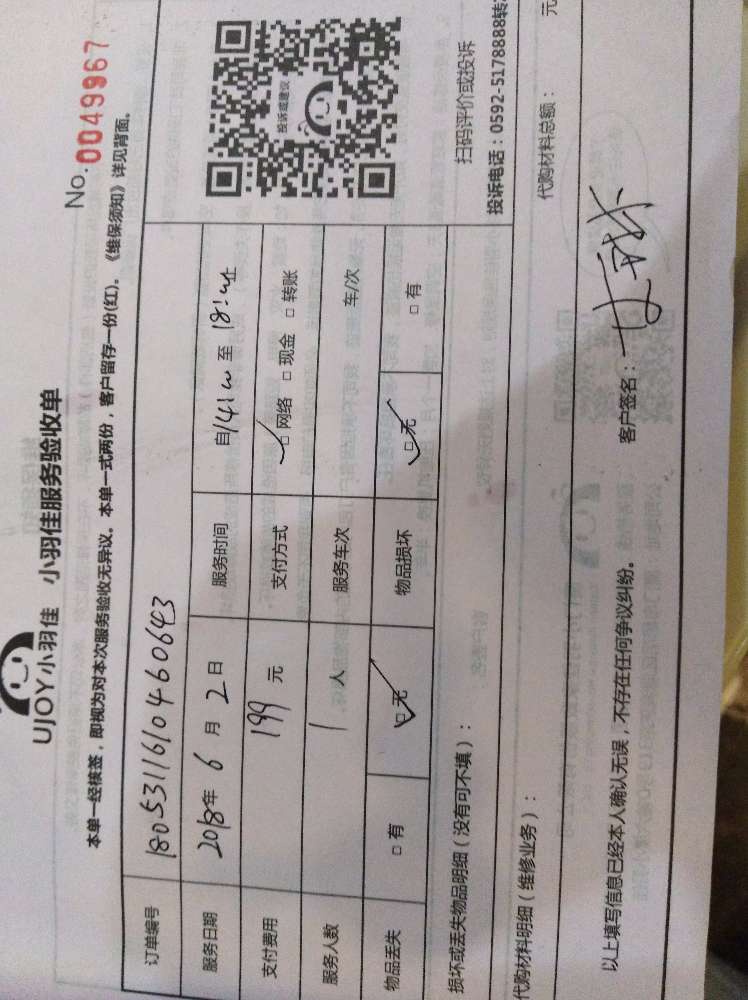 UJOY小羽佳 小羽佳服务验收单
No. 0049967
本单一经核签，即视为对本次服务验收无异议。本单一式两份，客户留存一份(红)。《维保须知》详见背面。
订单编号 180531161010460643
服务日期 2018年 6 月 2 日 服务时间 自14:00 至 18:00止
支付费用 199 元 支付方式 □ 网络 □ 现金 □ 转账
服务人数 1 人 服务车次 车/次
物品丢失 □ 有 □ 无 物品损坏 □ 无 □ 有
投诉或建议
扫码评价或投诉
投诉电话：0592-5178888转
损坏或丢失物品明细（没有可不填）：
代购材料明细（维修业务）：
代购材料总额： 元
以上填写信息已经本人确认无误，不存在任何争议纠纷。 客户签名：